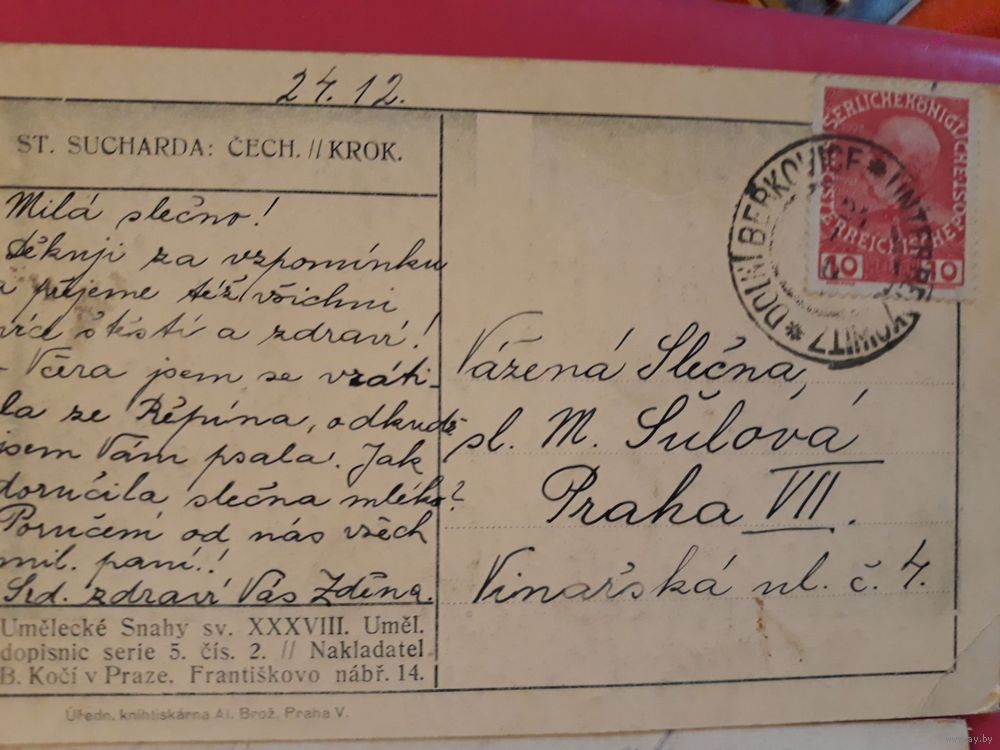 24.12.
ST. SUCHARDA: ČECH. // KROK.
Milá slečno!
děkuji za vzpomínku
a přejeme též všichni
více štěstí a zdraví!
- Včera jsem se vráti-
la ze Řepína, odkudž
jsem Vám psala. Jak
doručila slečna mléko?
Poručení od nás všech
mil. paní!!
Srd. zdraví Vás Zděna.
Umělecké Snahy sv. XXXVIII. Uměl.
dopisnic serie 5. čís. 2. // Nakladatel
B. Kočí v Praze. Františkovo nábř. 14.
Úředn. knihtiskárna Al. Brož, Praha V.
SERLICHEKÖNIGLICHEÖSPO
ERREICHISCHEPO
10 10
DOLNÍ BEŘKOVICE * UNTERBEŘKOWITZ *
Vážená Slečna,
sl. M. Šulová
Praha VII.
Vinařská ul. č. 4.
ay.by